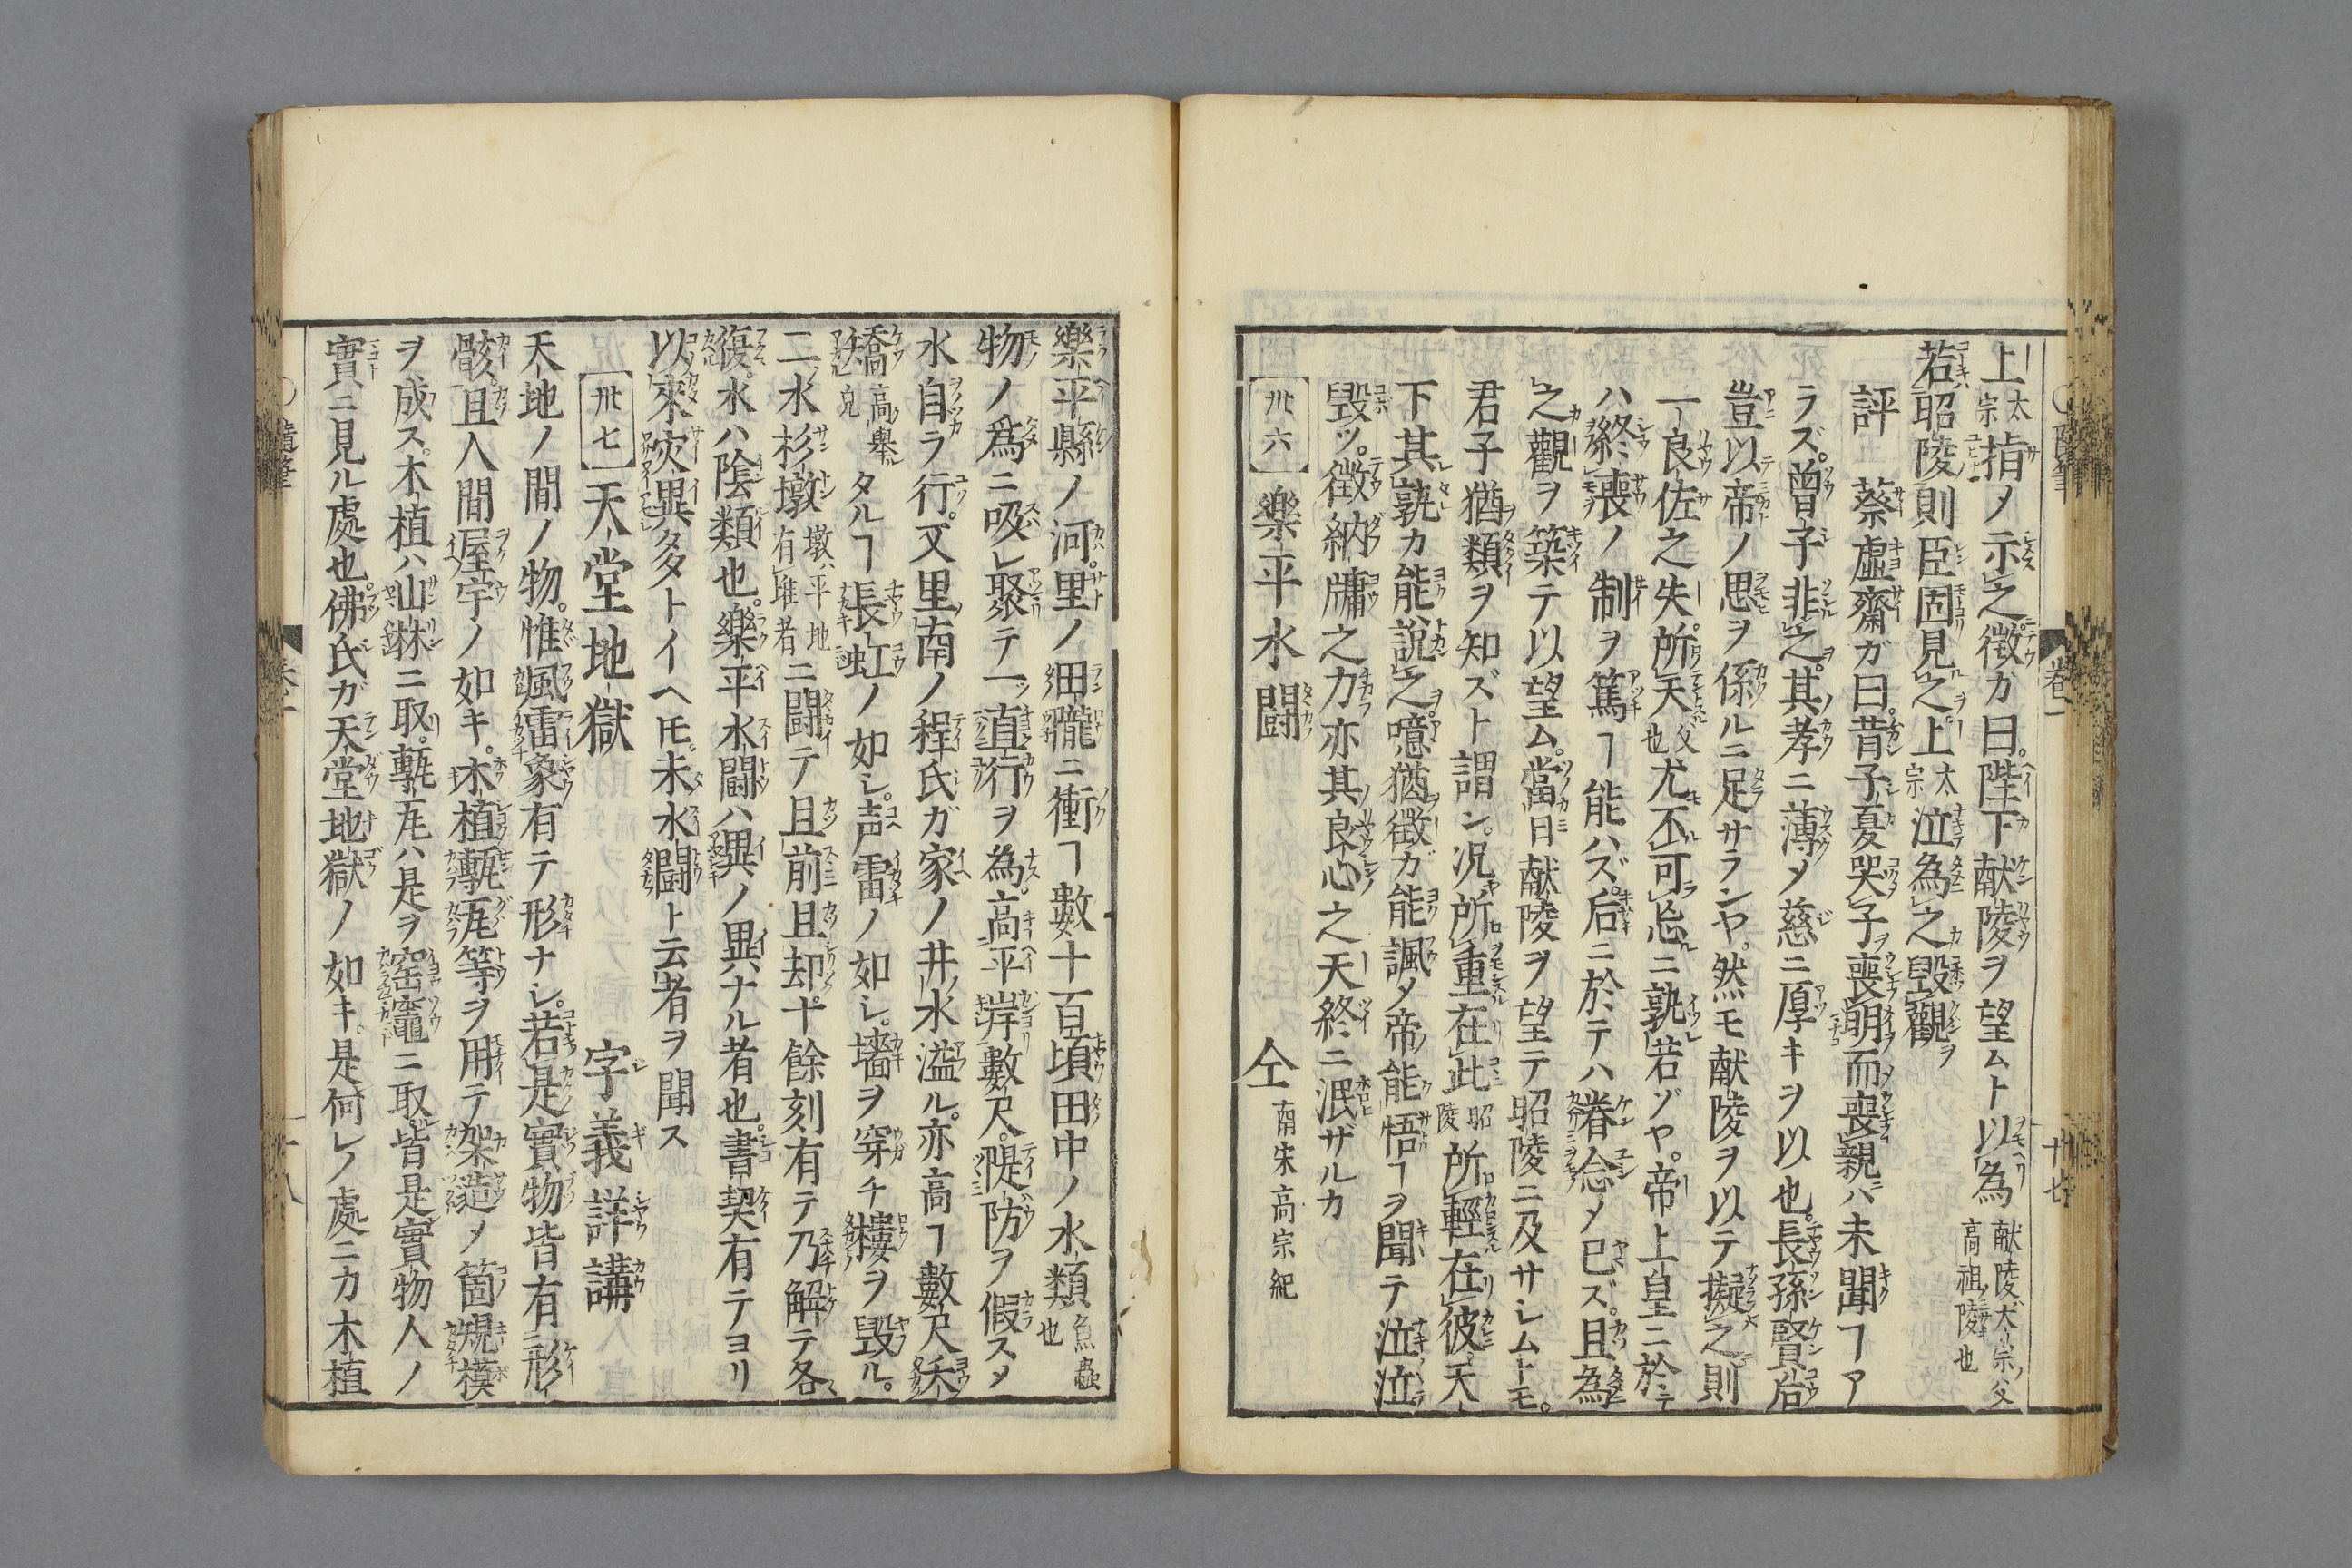 上太宗指メ示之徴ガ曰。陛下献陵ヲ望ムト以為献陵ハ太宗ノ父高祖ノ陵也
若昭陵則臣固見之上太宗泣為之毀觀ヲ
評 蔡虚齋ガ曰。昔子夏哭子喪明而喪親ハ未聞ヿア
ラズ。曽子非之。其孝ニ薄メ慈ニ厚キヲ以也。長孫賢后
豈以帝ノ思ヲ係ルニ足サランヤ。然モ献陵ヲ以テ擬之則
一良佐之失。所天父也尤不可忘ニ孰若ゾヤ。帝上皇ニ於テ
ハ終喪ノ制ヲ篤ヿ能ハズ。后ニ於テハ眷念メ已ズ。且為
之觀ヲ築テ以望ム。當日献陵ヲ望テ昭陵ニ及サシムトモ。
君子猶類ヲ知ズト謂ン。况所重在此昭陵所輕在彼。天
下其孰カ能説之噫猶徴ガ能諷メ帝能悟ヿヲ聞テ泣泣
毀ツ。徴納牗之力亦其良心之天終ニ泯ザルカ
卅六 樂平水闘 仝南宋高宗紀
樂平縣ノ河。里ノ田隴ニ衝ヿ數十百頃田中ノ水類魚蟲也
物ノ爲ニ吸レ聚テ一直行ヲ為。高平岸數尺。隄防ヲ假スメ
水自ラ行。又里南ノ程氏ガ家ノ井水溢ル。亦高ヿ數尺夭
矯高舉ル皃タルヿ長虹ノ如シ。声雷ノ如シ。墻ヲ穿チ樓ヲ毀ル。
二水杉墩墩ハ平地有堆者ニ闘テ且前且却ヿ十餘刻有テ乃解テ各
復。水ハ陰類也。樂平水闘ハ異ノ異ナル者也。書契有テヨリ
以來灾異多トイヘ𪜈未水闘ト云者ヲ聞ス
卅七 天堂地獄 字義詳講
天地ノ間ノ物。惟風雷象有テ形ナシ。若是實物皆有形
骸。且人間屋宇ノ如キ。木植甎瓦等ヲ用テ架造メ箇規模
ヲ成ス。木植ハ山林ニ取。甎瓦ハ是ヲ窑竈ニ取。皆是實物人ノ
實ニ見ル處也。佛氏ガ天堂地獄ノ如キ。是何レノ處ニカ木植